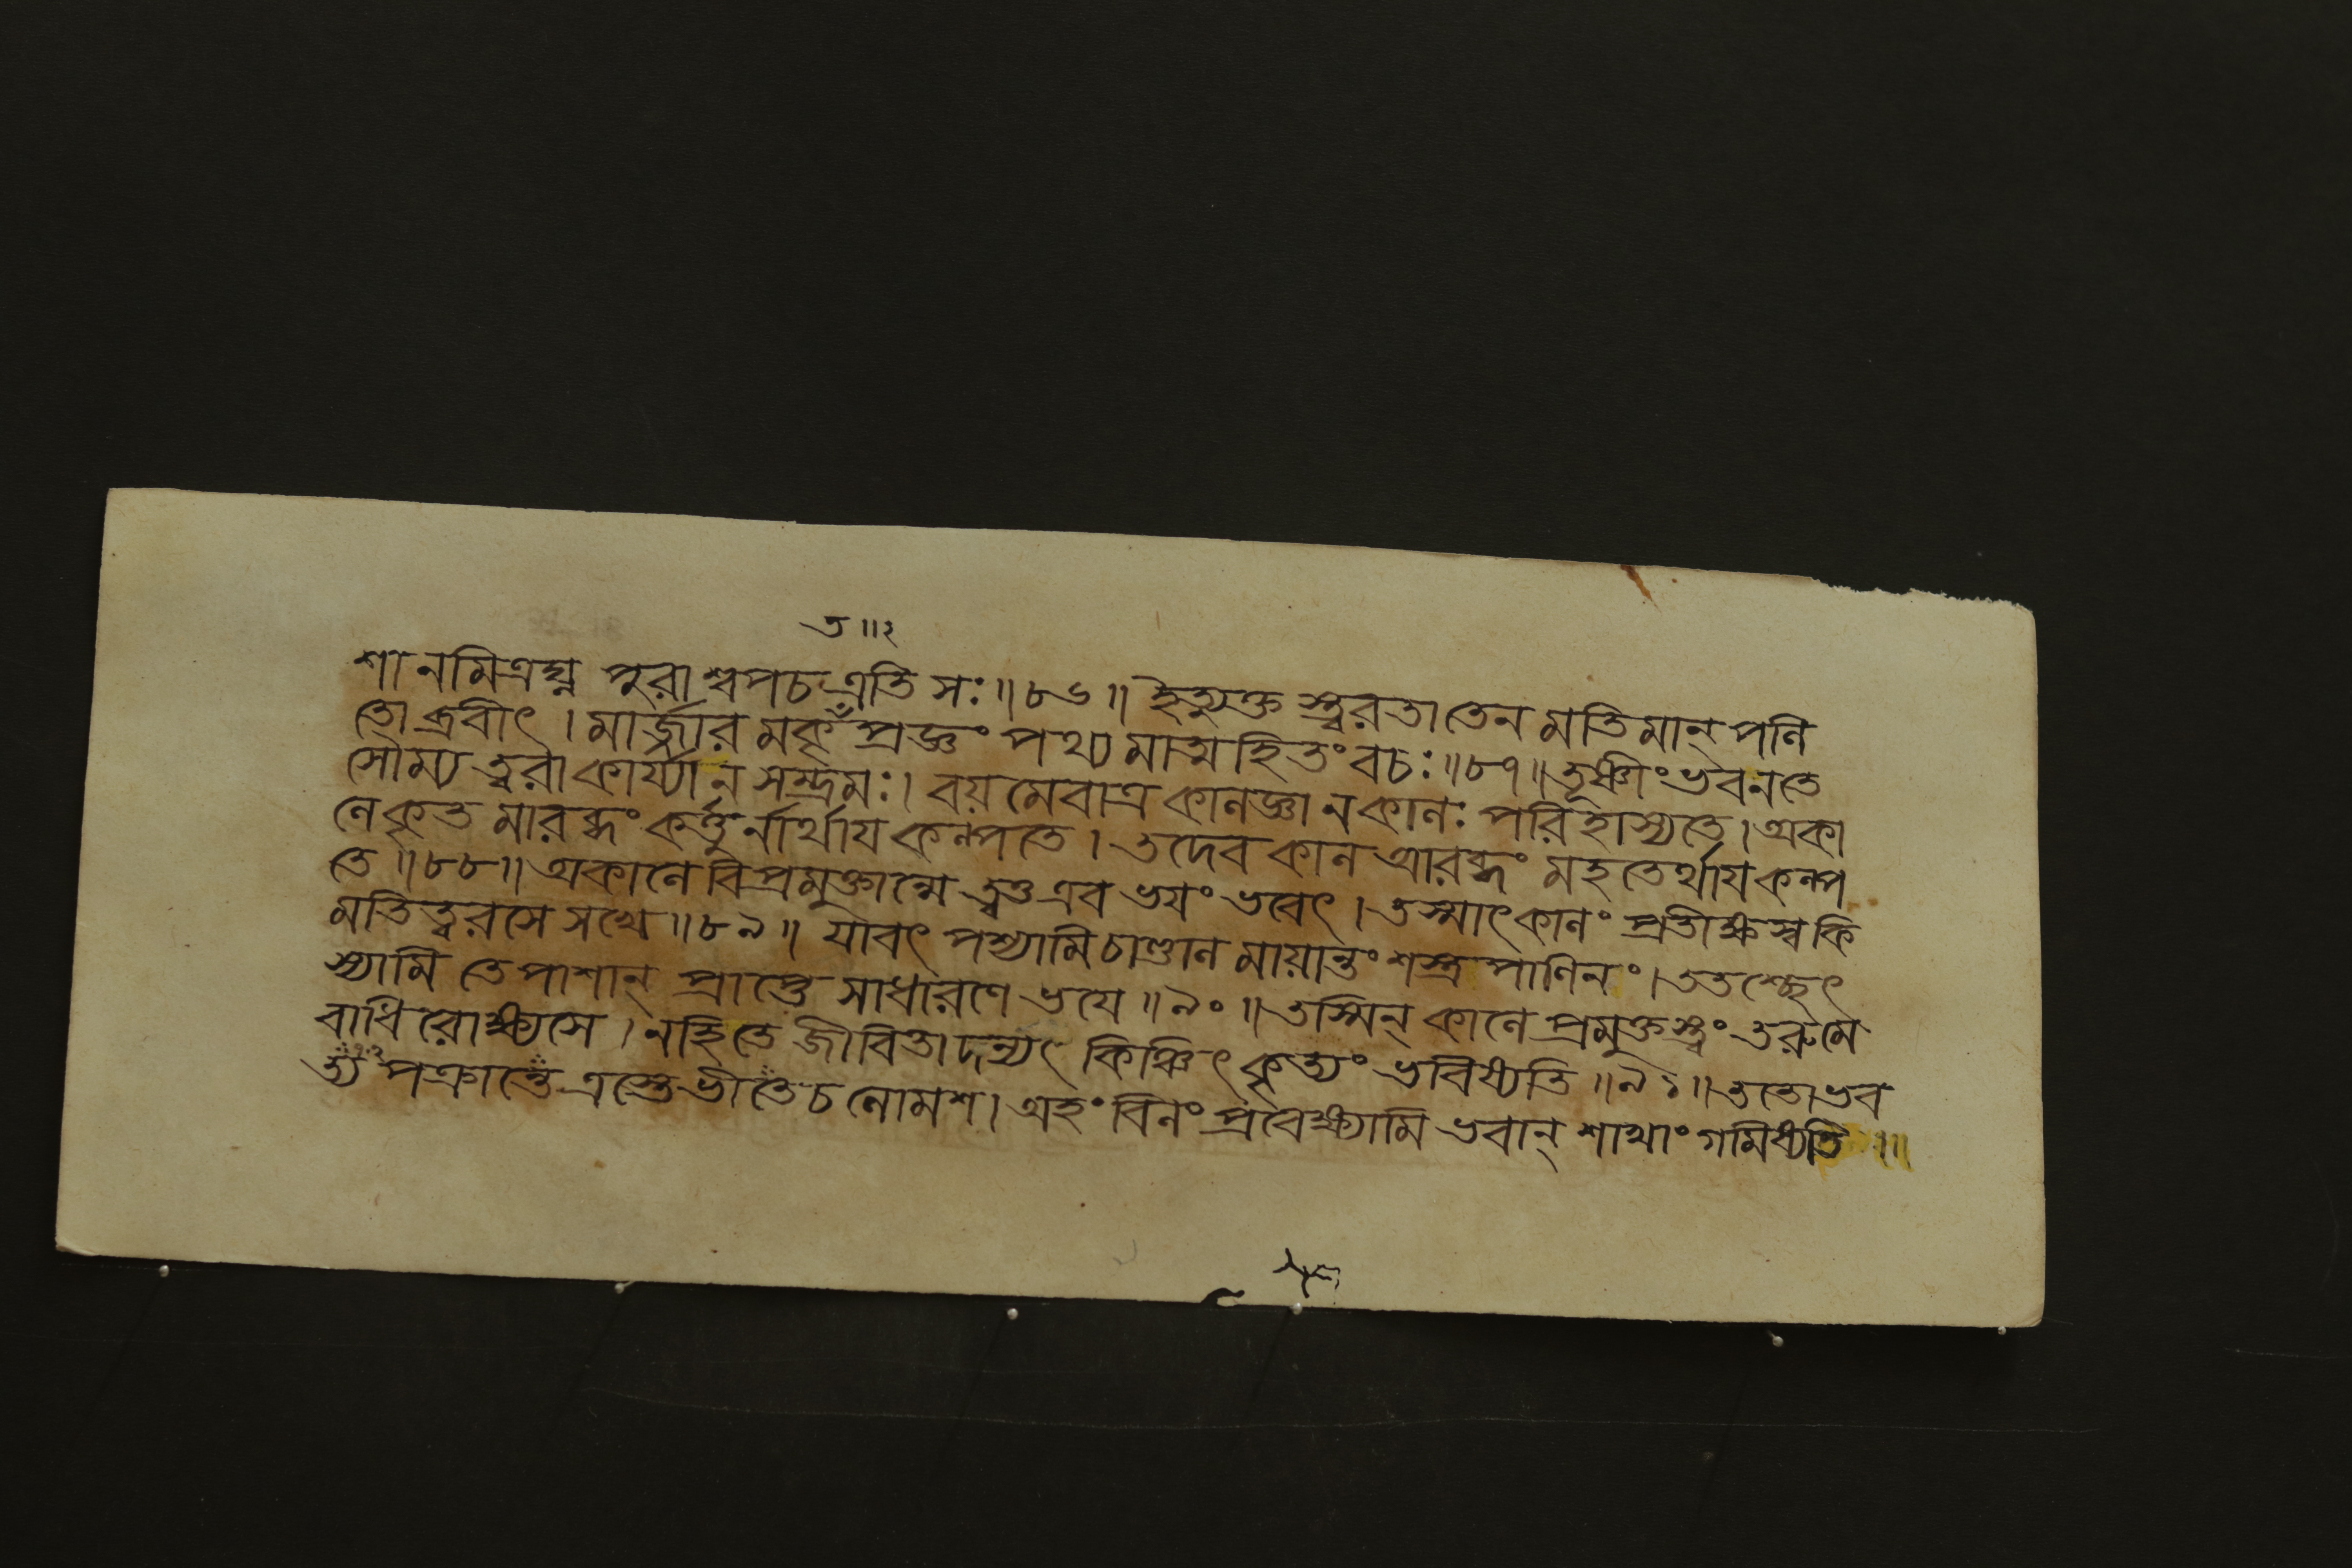 ত ॥ ২
শানমিত্রঘ্ন পুরাশ্বপচএতি সঃ ॥ ৮৬ ॥ ইত্যুক্তস্ত্বরতাতেন মতিমান্ পলি
তোব্রবীৎ । মার্জ্জারমকৃতপ্রজ্ঞং পথ্যমাত্মহিতং বচঃ ॥ ৮৭ ॥ তূষ্ণীং ভবনতে
সৌম্য ত্বরাকার্য্যানসম্ভ্রমঃ । বয়মেবাত্র কালজ্ঞা নকালঃ পরিহাস্যতে । অকা
লে কৃতমারব্ধং কর্ত্তুর্নার্থায কল্পতে । তদেব কাল আরব্ধং মহতের্থায কল্প
তে ॥ ৮৮ ॥ অকালে বিপ্রমুক্তান্মে ত্বত্ত এব ভযং ভবেৎ । তস্মাৎ কালং প্রতীক্ষস্ব কি
মতি ত্বরসে সখে ॥ ৮৯ ॥ যাবৎ পশ্যামি চাণ্ডালমায়ান্তং শস্ত্রপাণিনং । ততশ্ছেৎ
স্যামি তে পাশান্ প্রাপ্তে সাধারণে ভযে ॥ ৯০ ॥ তস্মিন্ কালে প্রমুক্তস্ত্বং তরুমে
বাধিরোক্ষ্যসে । নহি তে জীবিতাদন্যৎ কিঞ্চিৎ কৃত্যং ভবিষ্যতি ॥ ৯১ ॥ ততো ভব
ত্যপক্রান্তে ত্রস্তে ভীতে চ লোমশ । অহং বিলং প্রবেক্ষ্যামি ভবান্ শাখাং গমিষ্যতি ॥